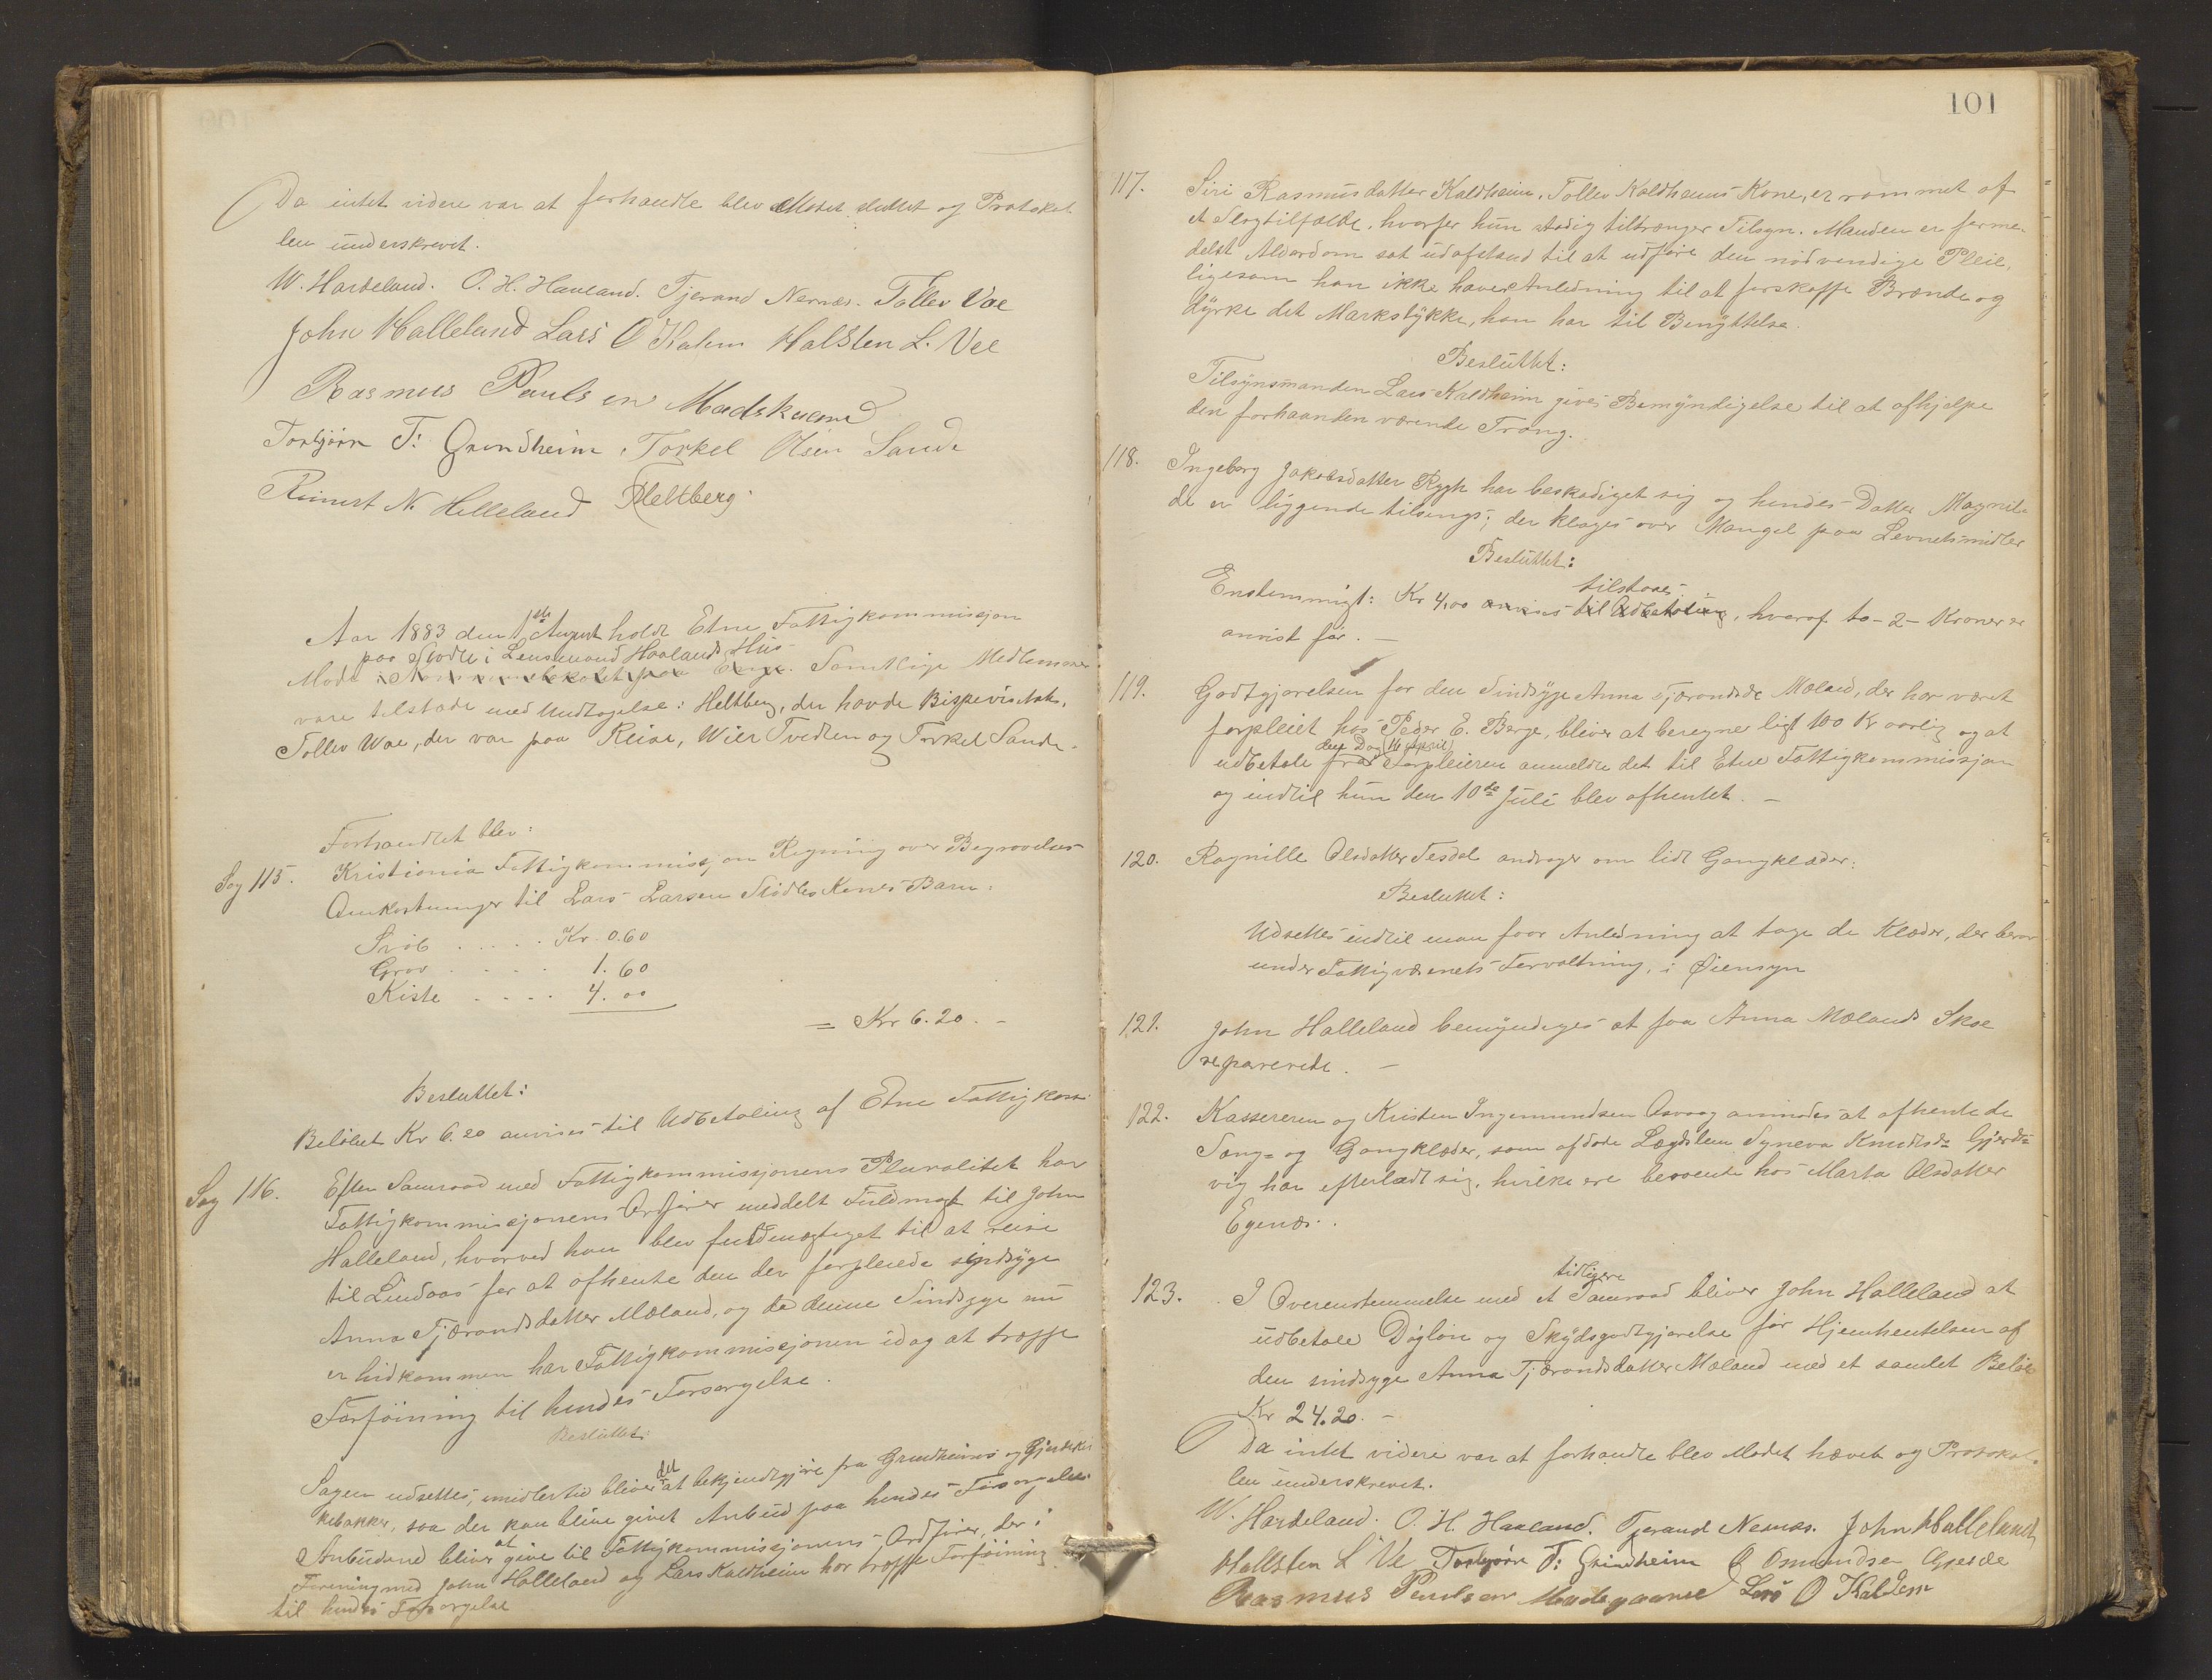 Da intet videre var at forhandle blev Mødet sluttet og Protokol-
len underskrevet.
W. Hardeland. O. H. Haaland. Tjerand Nernes. Tollev Vae
John Halleland Lars O Kalem Halsten L. Vee
Rasmus Paulsen Madskuand
Torbjörn T: Grindheim. Torkel Olsen Sande
Reinert N. Helleland Heltberg.
Aar 1883 den 1ste August holdt Etne Fattigkommissjon
paa Stødle i Lensmand Haalands Hus
Møde i Kommunelokalet paa Enge. Samtlige Medlemmer
vare tilstæde med Undtagelse: Heltberg, der havde Bispevisitats,
Tollev Wae, der var paa Reise, Wier Tvedten og Torkel Sande.
Forhandlet blev:
Sag 115. Kristiania Fattigkommissjon Regning over Begravelses-
Omkostninger til Lars Larsen Stødles Kones Barn:
Svøb . . . . . Kr. 0.60
Grav . . . . . 1.60
Kiste . . . . 4.00
= Kr 6.20. -
Besluttet:
Beløbet Kr 6.20 anvises til Udbetaling af Etne Fattigkom.
Sag 116. Efter Samraad med Fattigkommissjonens Pluralitet har
Fattigkommissjonens Ordfører meddelt Fuldmagt til John
Halleland, hvorved han blev fuldmægtiget til at reise
til Lindaas for at afhente den der forpleiede sindsyge
Anna Tjærandsdatter Mæland, og da denne Sindsyge nu
er hidkommen har Fattigkommissjonen idag at træffe
Forføining til hendes Forsørgelse.
Besluttet:
Sagen udsettes, imidlertid bliver det at bekjendtgjøre fra Grindheims og Gjerdes Kir
kebakker, saa der kan blive givet Anbud paa hendes Forsørgelse.
Anbudene bliver at give til Fattigkommissjonens Ordfører, der i
Forening med John Halleland og Lars Kaldheim har træffe Forføining
til hendes Forsørgelse
101
117. Siri Rasmusdatter Kaldheim, Tollev Kaldheims Kone, er rammet af
et Slagtilfælde, hvorfor hun stadig tiltrænger Tilsyn. Manden er forme-
delst Alderdom sat udafstand til at udføre den nødvendige Pleie,
ligesom han ikke haver Anledning til at forskaffe Brænde og
dyrke det Markstykke, han har til Benyttelse.
Besluttet:
Tilsynsmanden Lars Kaldheim gives Bemyndigelse til at afhjelpe
den forhaanden værende Trang.
118. Ingeborg Jakobsdatter Rygh har beskadiget sig og hendes Datter Magnil-
de er liggende tilsengs; der klages over Mangel paa Levnetsmidler
Besluttet:
tilstaaes
Enstemmigt: Kr 4,00 anvises til Udbetaling, hvoraf to - 2 - Kroner er
anvist før. -
119. Godtgjørelsen for den Sindsyge Anna Tjærandsdr Mæland, der har været
forpleiet hos Peder E. Berge, bliver at beregne ligt 100 Kr aarlig og at
den Dag (16 April)
udbetale fra Forpleieren anmeldte det til Etne Fattigkommissjon
og indtil hun den 10de Juli blev afhentet. -
120. Ragnille Olsdatter Tesdal andrager om lidt Gangklæder:
Besluttet:
Udsettes indtil man faar Anledning at tage de Klæder, der beror
under Fattigvæsnets Forvaltning, i Øiensyn
121. John Halleland bemyndiges at faa Anna Mælands Skoe
reparerede. -
122. Kassereren og Kristen Ingemundsen Osvaag anmodes at afhente de
Seng= og Gangklæder, som afdøde Lægdslem Syneva Knudtsdr Gjerds-
vig har efterladt sig, hvilke ere beroende hos Marta Olsdatter
Egenæs.
123. tidligere
I Overenstemmelse med et Samraad bliver John Halleland at
udbetale Dagløn og Skydsgodtgjørelse for Hjemhentelsen af
den sindsyge Anna Tjærandsdatter Mæland med et samlet Beløb
Kr 24.20. -
Da intet videre var at forhandle blev Mødet hævet og Protokol-
len underskrevet.
W. Hardeland. O. H. Haaland. Tjerand Nernes. John Halleland
Hallsten L Ve Torbjörn T: Grindheim O Omundsen Gjerde
Rasmus Paulsen Lars O Kaldem